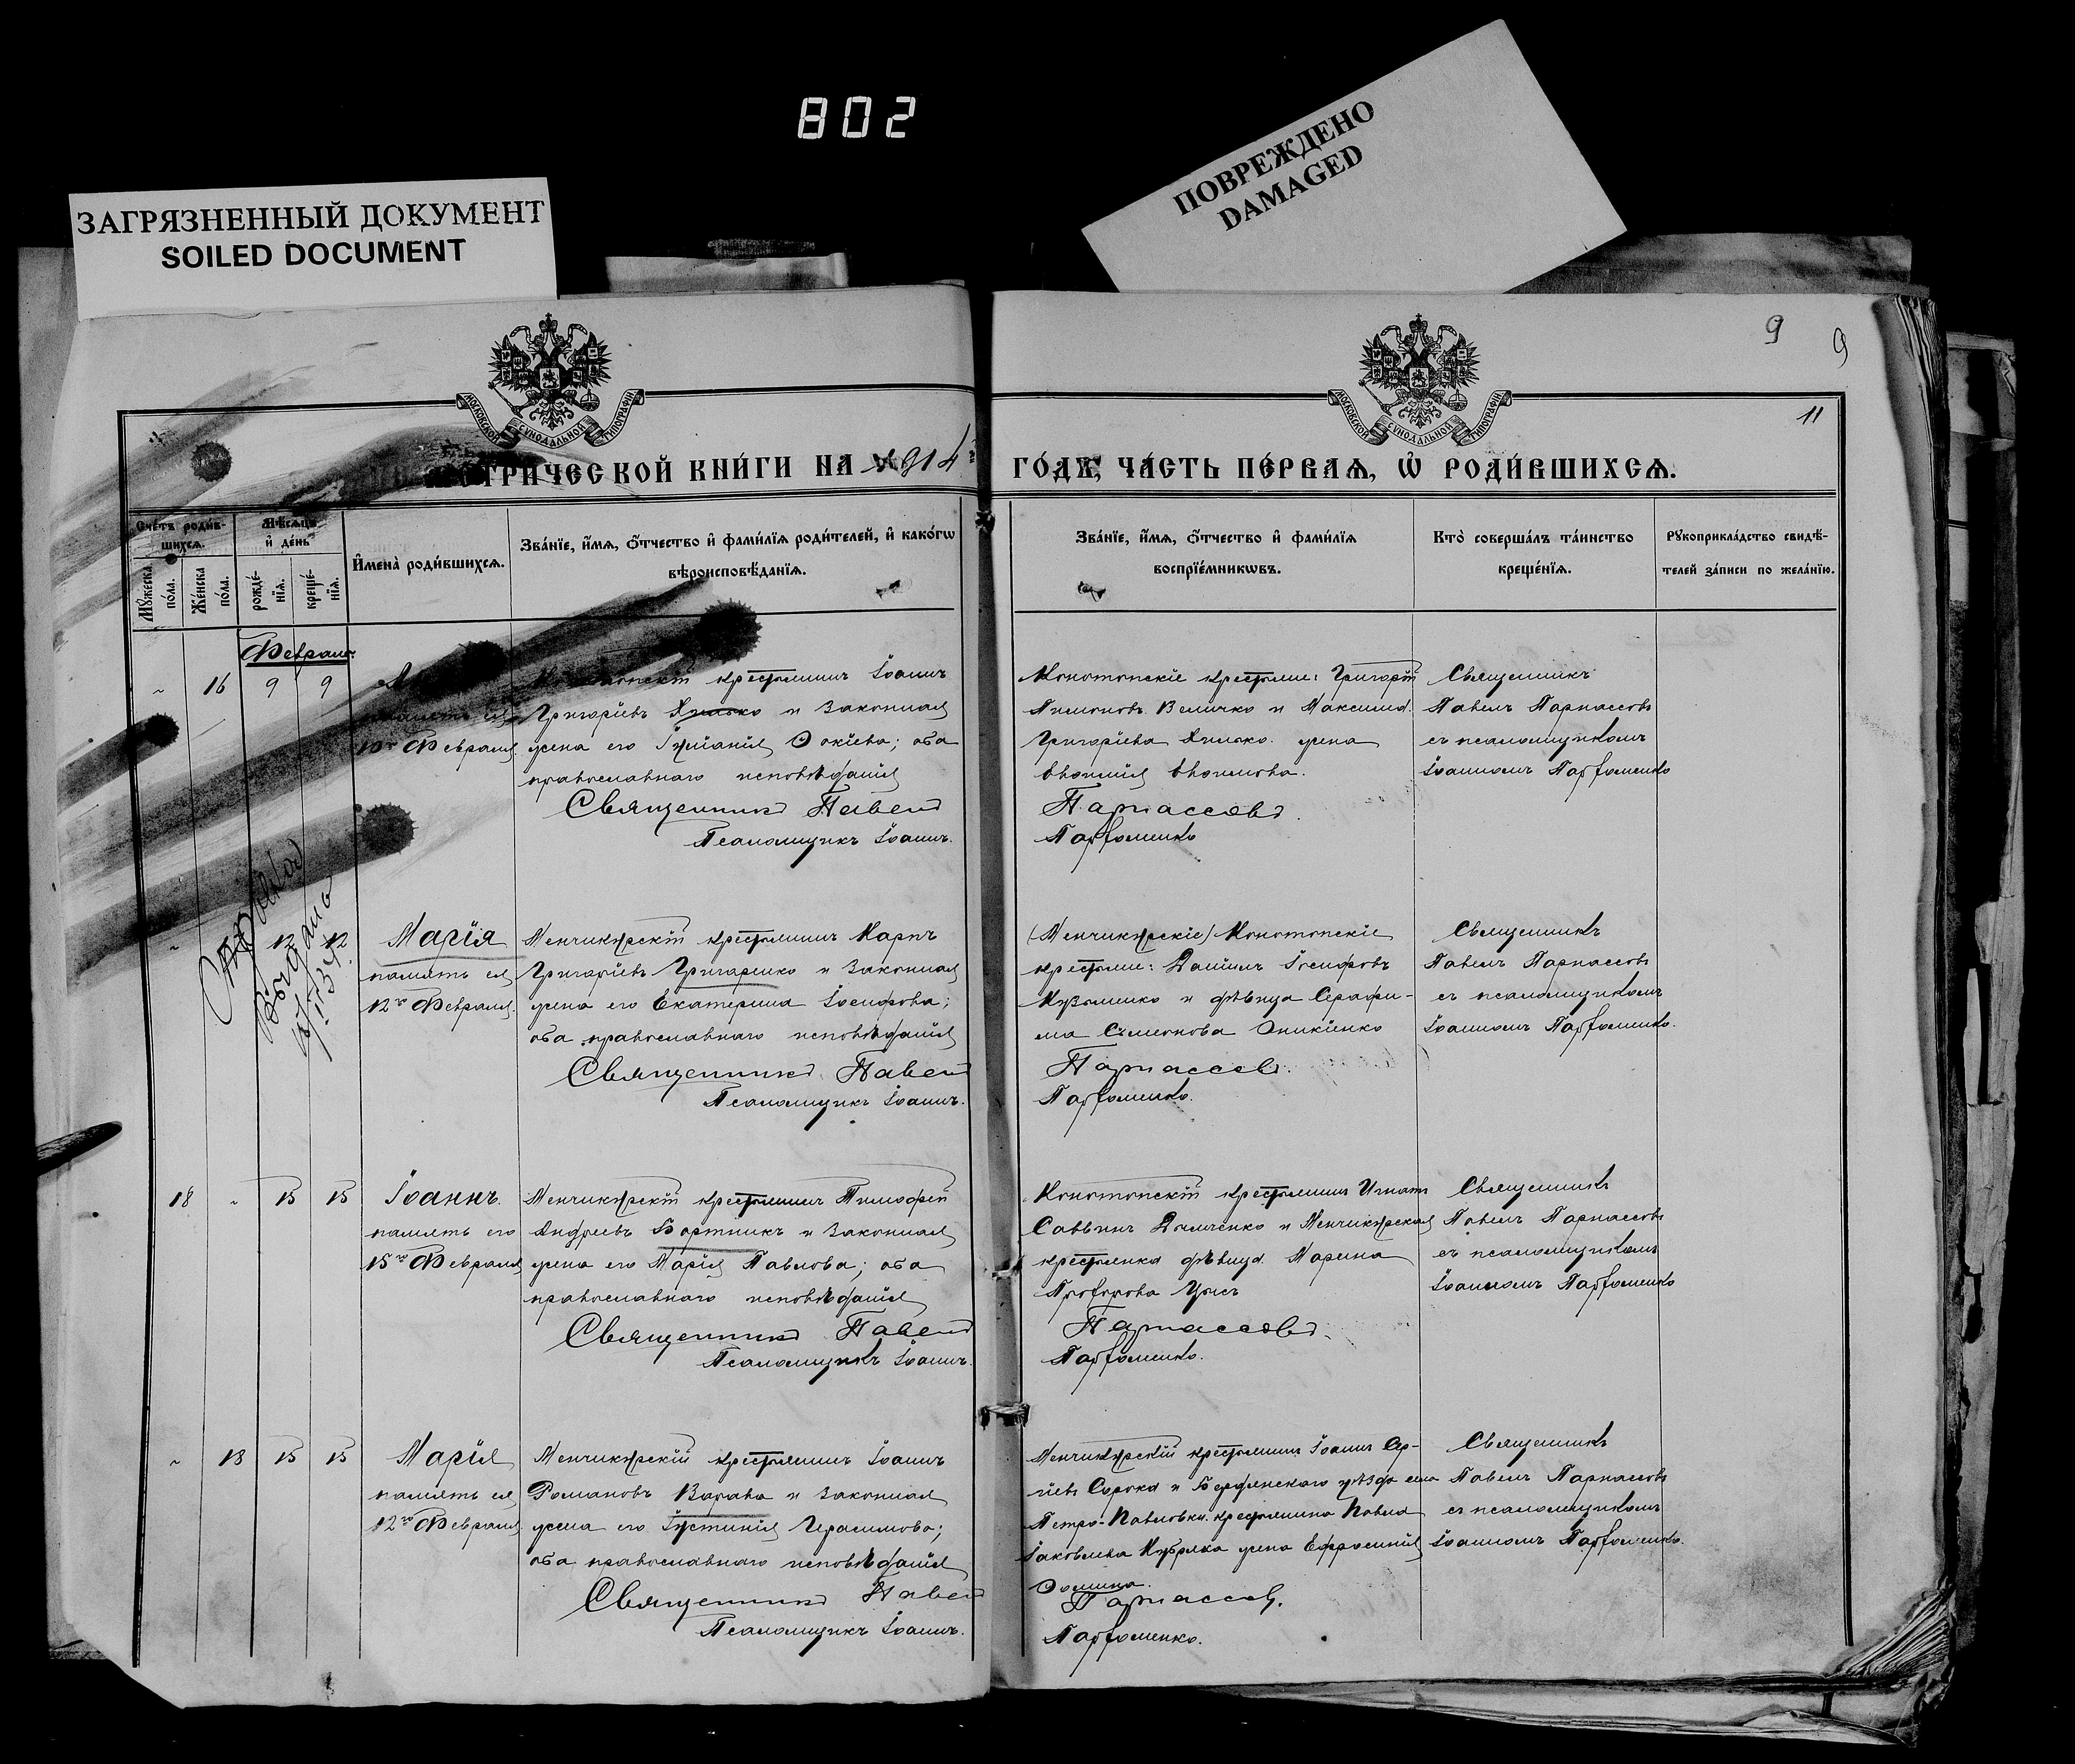 802
ЗАГРЯЗНЕННЫЙ ДОКУМЕНТ
SOILED DOCUMENT
ПОВРЕЖДЕНО
DAMAGED
МОСКОВСКОЙ СѴНОДАЛЬНОЙ ТИПОГРАФІИ
МОСКОВСКОЙ СѴНОДАЛЬНОЙ ТИПОГРАФІИ
9
9
11
МЕТРИ́ЧЕСКОЙ КНИ́ГИ НА 1914 ГО́ДЪ, ЧА́СТЬ ПЕ́РВАѦ, Ѡ РОДИ́ВШИХСѦ.
Сче́тъ роди́в-
шихсѧ.
Мѣ́сѧцъ
и҆ де́нь
Мꙋ́жеска
по́ла.
Же́нска
по́ла.
рожде́-
нїѧ.
креще́-
нїѧ.
И҆мена̀ роди́вшихсѧ.
Зва́нїе, и҆́мѧ, ѻ҆́тчество и҆ фами́лїѧ роди́телей, и҆ како́гѡ
вѣроисповѣ́данїѧ.
Зва́нїе, и҆́мѧ, ѻ҆́тчество и҆ фами́лїѧ
воспрїе́мникѡвъ.
Кто̀ соверша́лъ та́инство
креще́нїѧ.
Рꙋкоприкла́дство свидѣ́-
телей за́писи по жела́нїю.
Февраль
16 9 9
Февраля
крестьянинъ Іоаннъ
Григоріевъ Хилько и законная
жена его Іуліанія Фокіева; оба
православнаго исповѣданія
Священникъ Павелъ
Псаломщикъ Іоаннъ
Конотопскіе крестьяне: Григорій
Величко и
Григорьева Хилько жена
Парнассовъ
Парфоменко
Священникъ
Павелъ Парнассовъ
съ псаломщикомъ
Іоанномъ Парфоменко
Выдано
12 12
Марія
память ея
12го Февраля.
Менчикурскій крестьянинъ Карпъ
Григоріевъ Григоренко и законная
жена его Екатерина Іосифова;
оба православнаго исповѣданія
Священникъ Павелъ
Псаломщикъ Іоаннъ.
(Менчикурскіе) Конотопскіе
крестьяне: Даніилъ Іосифовъ
Кузьменко и дѣвица Серафи-
ма Симеонова Оникіенко
Парнассовъ.
Парфоменко.
Священникъ
Павелъ Парнассовъ
съ псаломщикомъ
Іоанномъ Парфоменко.
18 " 15 15
Іоаннъ.
память его
15го Февраля
Менчикурскій крестьянинъ Тимофей
Андреевъ Бортникъ и законная
жена его Марія Павлова; оба
православнаго исповѣданія
Священникъ Павелъ
Псаломщикъ Іоаннъ.
Конотопскій крестьянинъ Игнатъ
Саввинъ Дьяченко и Менчикурская
крестьянка дѣвица Марина
Прохорова
Парнассовъ.
Парфоменко.
Священникъ
Павелъ Парнассовъ
съ псаломщикомъ
Іоанномъ Парфоменко
" 18 15 15
Марія
память ея
12го Февраля
Менчикурскій крестьянинъ Іоаннъ
Романовъ Варава и законная
жена его Іустинія Герасимова;
оба православнаго исповѣданія
Священникъ Павелъ
Псаломщикъ Іоаннъ.
Менчикурскій крестьянинъ Іоаннъ Сер-
гіевъ Сорока и Бердянскаго уѣзда села
Петро-Павловки крестьянина Павла
Іаковлева Кубряка жена Ефросинія
Фомина.
Парнассовъ.
Парфоменко.
Священникъ
Павелъ Парнассовъ
съ псаломщикомъ
Іоанномъ Парфоменко.